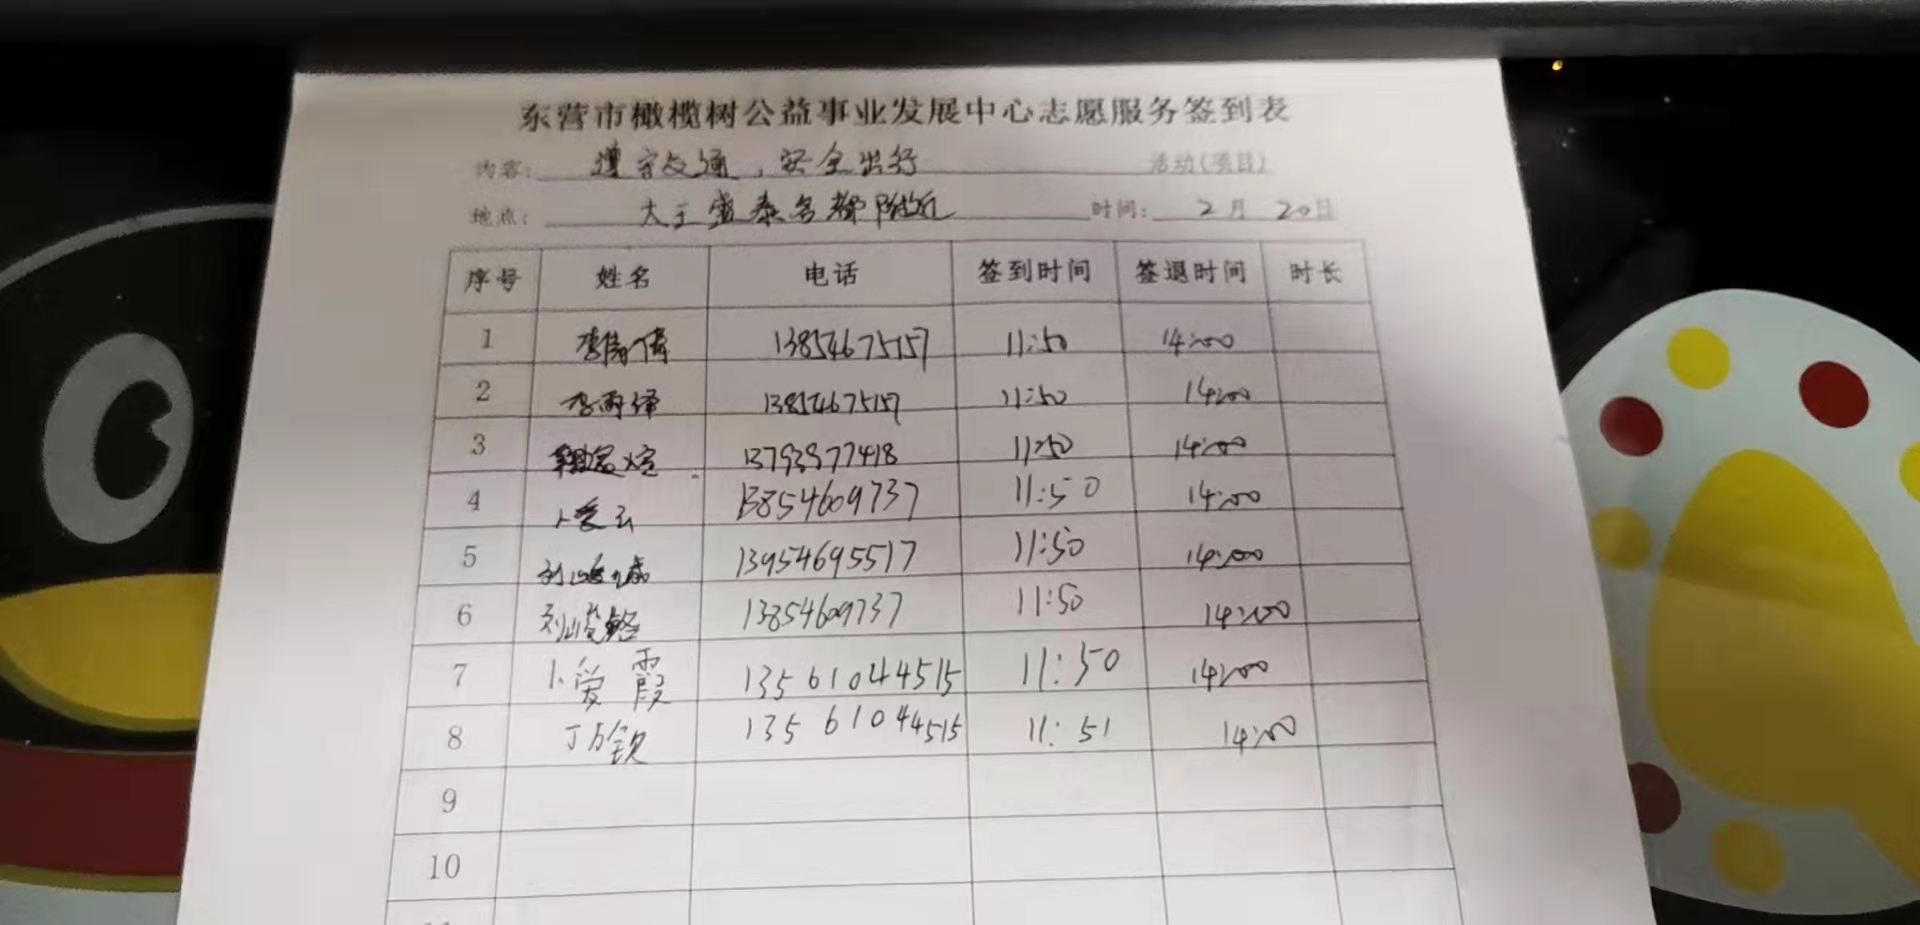 东营市橄榄树公益事业发展中心志愿服务签到表
内容: 遵守交通，安全出行 活动(项目)
地点: 大王盛泰名都附近 时间: 2月20日
序号 姓名 电话 签到时间 签退时间 时长
1 李倩倩 13854675157 11:50 14:00
2 李雨泽 13854675157 11:50 14:00
3 13793977418 11:50 14:00
4 卜爱云 13854609737 11:50 14:00
5 13954695517 11:50 14:00
6 刘峻铭 13854609737 11:50 14:00
7 卜爱霞 13561044515 11:50 14:00
8 丁万钦 13561044515 11:51 14:00
9
10